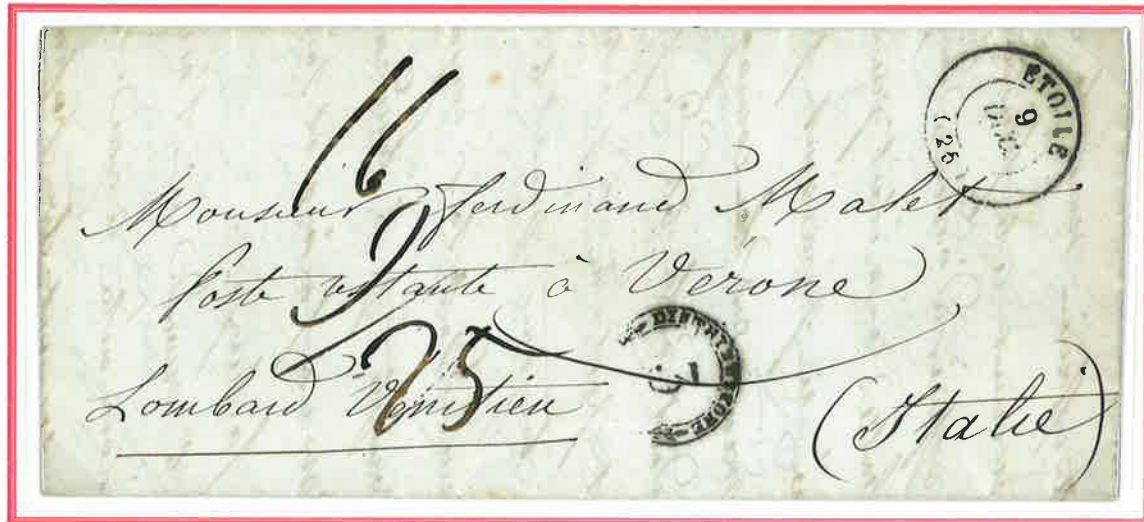 ÉTOILE
9
(25)
16
Monsieur Ferdinand Malet
9
Poste restante à Vérone
25
Lombard Vénitien
(Italie)